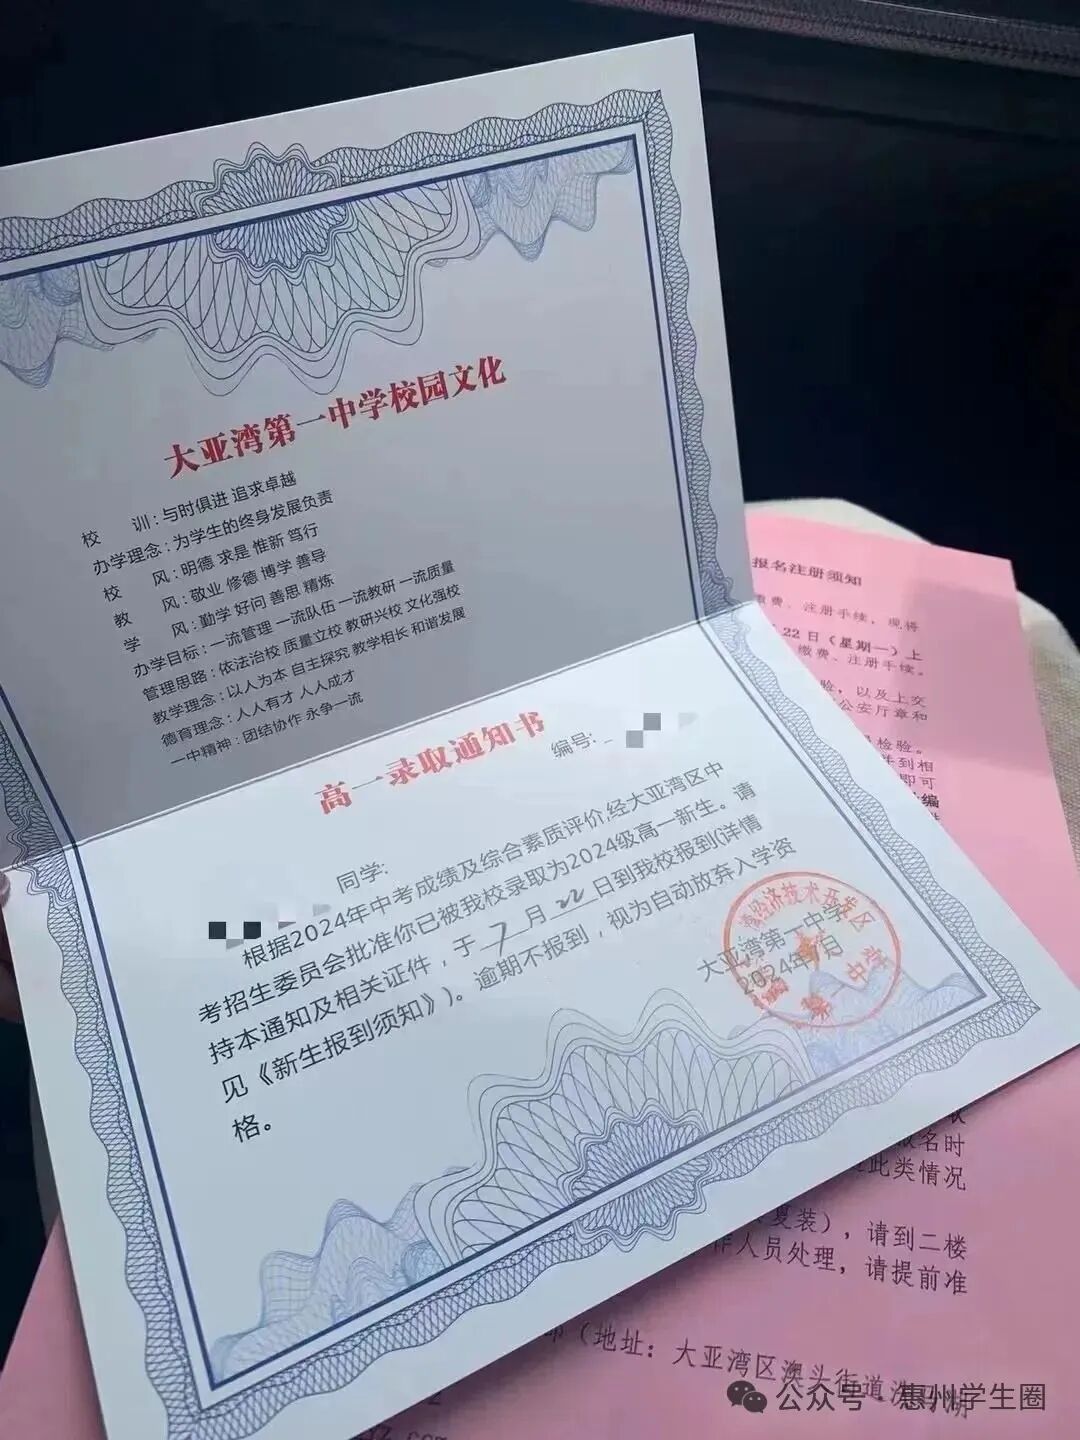 大亚湾第一中学校园文化
校 训：与时俱进 追求卓越
办学理念：为学生的终身发展负责
校 风：明德 求是 惟新 笃行
教 风：敬业 修德 博学 善导
学 风：勤学 好问 善思 精炼
办学目标：一流管理 一流队伍 一流教研 一流质量
管理思路：依法治校 质量立校 教研兴校 文化强校
教学理念：以人为本 自主探究 教学相长 和谐发展
德育理念：人人有才 人人成才
一中精神：团结协作 永争一流
高一录取通知书
编号:
同学:
根据2024年中考成绩及综合素质评价,经大亚湾区中
考招生委员会批准你已被我校录取为2024级高一新生。请
持本通知及相关证件，于 7 月 22 日到我校报到(详情
见《新生报到须知》)。逾期不报到，视为自动放弃入学资
格。
大亚湾第一中学
2024年7月
经济技术开发区
报名注册须知
缴费、注册手续，现将
22日（星期一）上
缴费、注册手续。
验，以及上交
公安厅章和
检验。
并到相
即可
编
报名时
此类情况
夏装），请到二楼
作人员处理，请提前准
（地址：大亚湾区澳头街道洗马湖
公众号 · 惠州学生圈